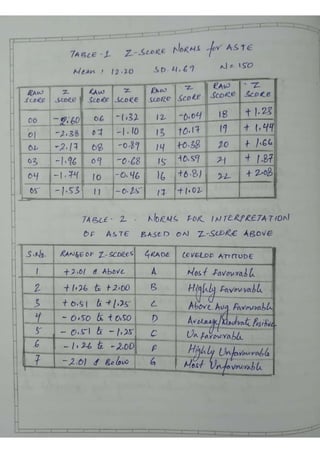 TABLE-1 Z-SCORE NORMS for ASTE
Mean : 12.20 SD 4.69 N=150
RAW SCORE Z SCORE RAW SCORE Z SCORE RAW SCORE Z SCORE RAW SCORE Z SCORE
00 -2.60 06 -1.32 12 -0.04 18 +1.23
01 -2.38 07 -1.10 13 +0.17 19 +1.44
02 -2.17 08 -0.89 14 +0.38 20 +1.66
03 -1.96 09 -0.68 15 +0.59 21 +1.87
04 -1.74 10 -0.46 16 +0.81 22 +2.08
05 -1.53 11 -0.25 17 +1.02
TABLE-2. NORMS FOR INTERPRETATION
OF ASTE BASED ON Z-SCORE ABOVE
S.No. RANGE OF Z-SCORES GRADE LEVEL OF ATTITUDE
1 +2.01 & Above A Most Favourable
2 +1.26 to +2.00 B Highly Favourable
3 +0.51 to +1.25 C Above Avg Favourable
4 -0.50 to +0.50 D Average/Moderate Positive
5 -0.51 to -1.25 C Unfavourable
6 -1.26 to -2.00 F Highly Unfavourable
7 -2.01 & Below G Most Unfavourable